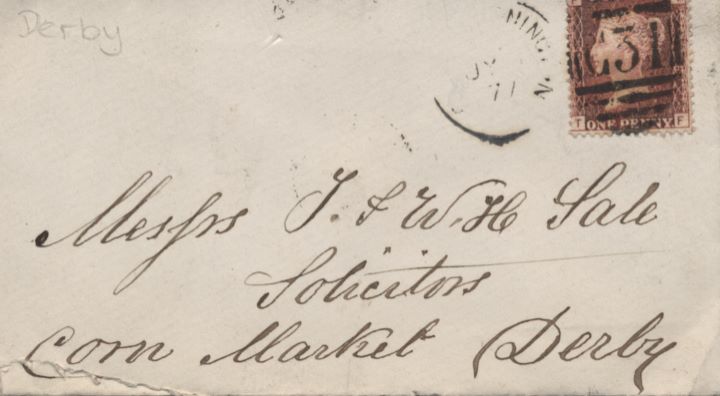 Derby
JY
71
C31
T ONE PENNY F
Messrs J. & W. H Sale
Solicitors
Corn Market Derby